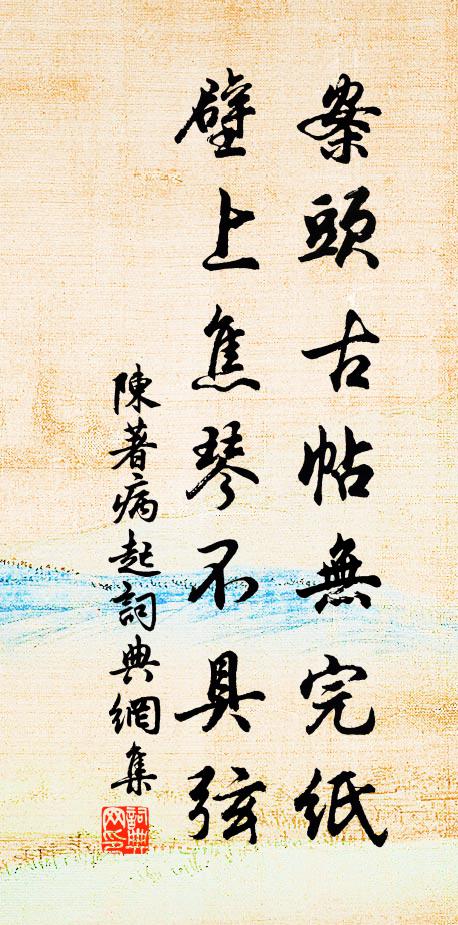 案頭古帖無完紙
壁上焦琴不具弦
陳著病起詞典網集
詞典网印